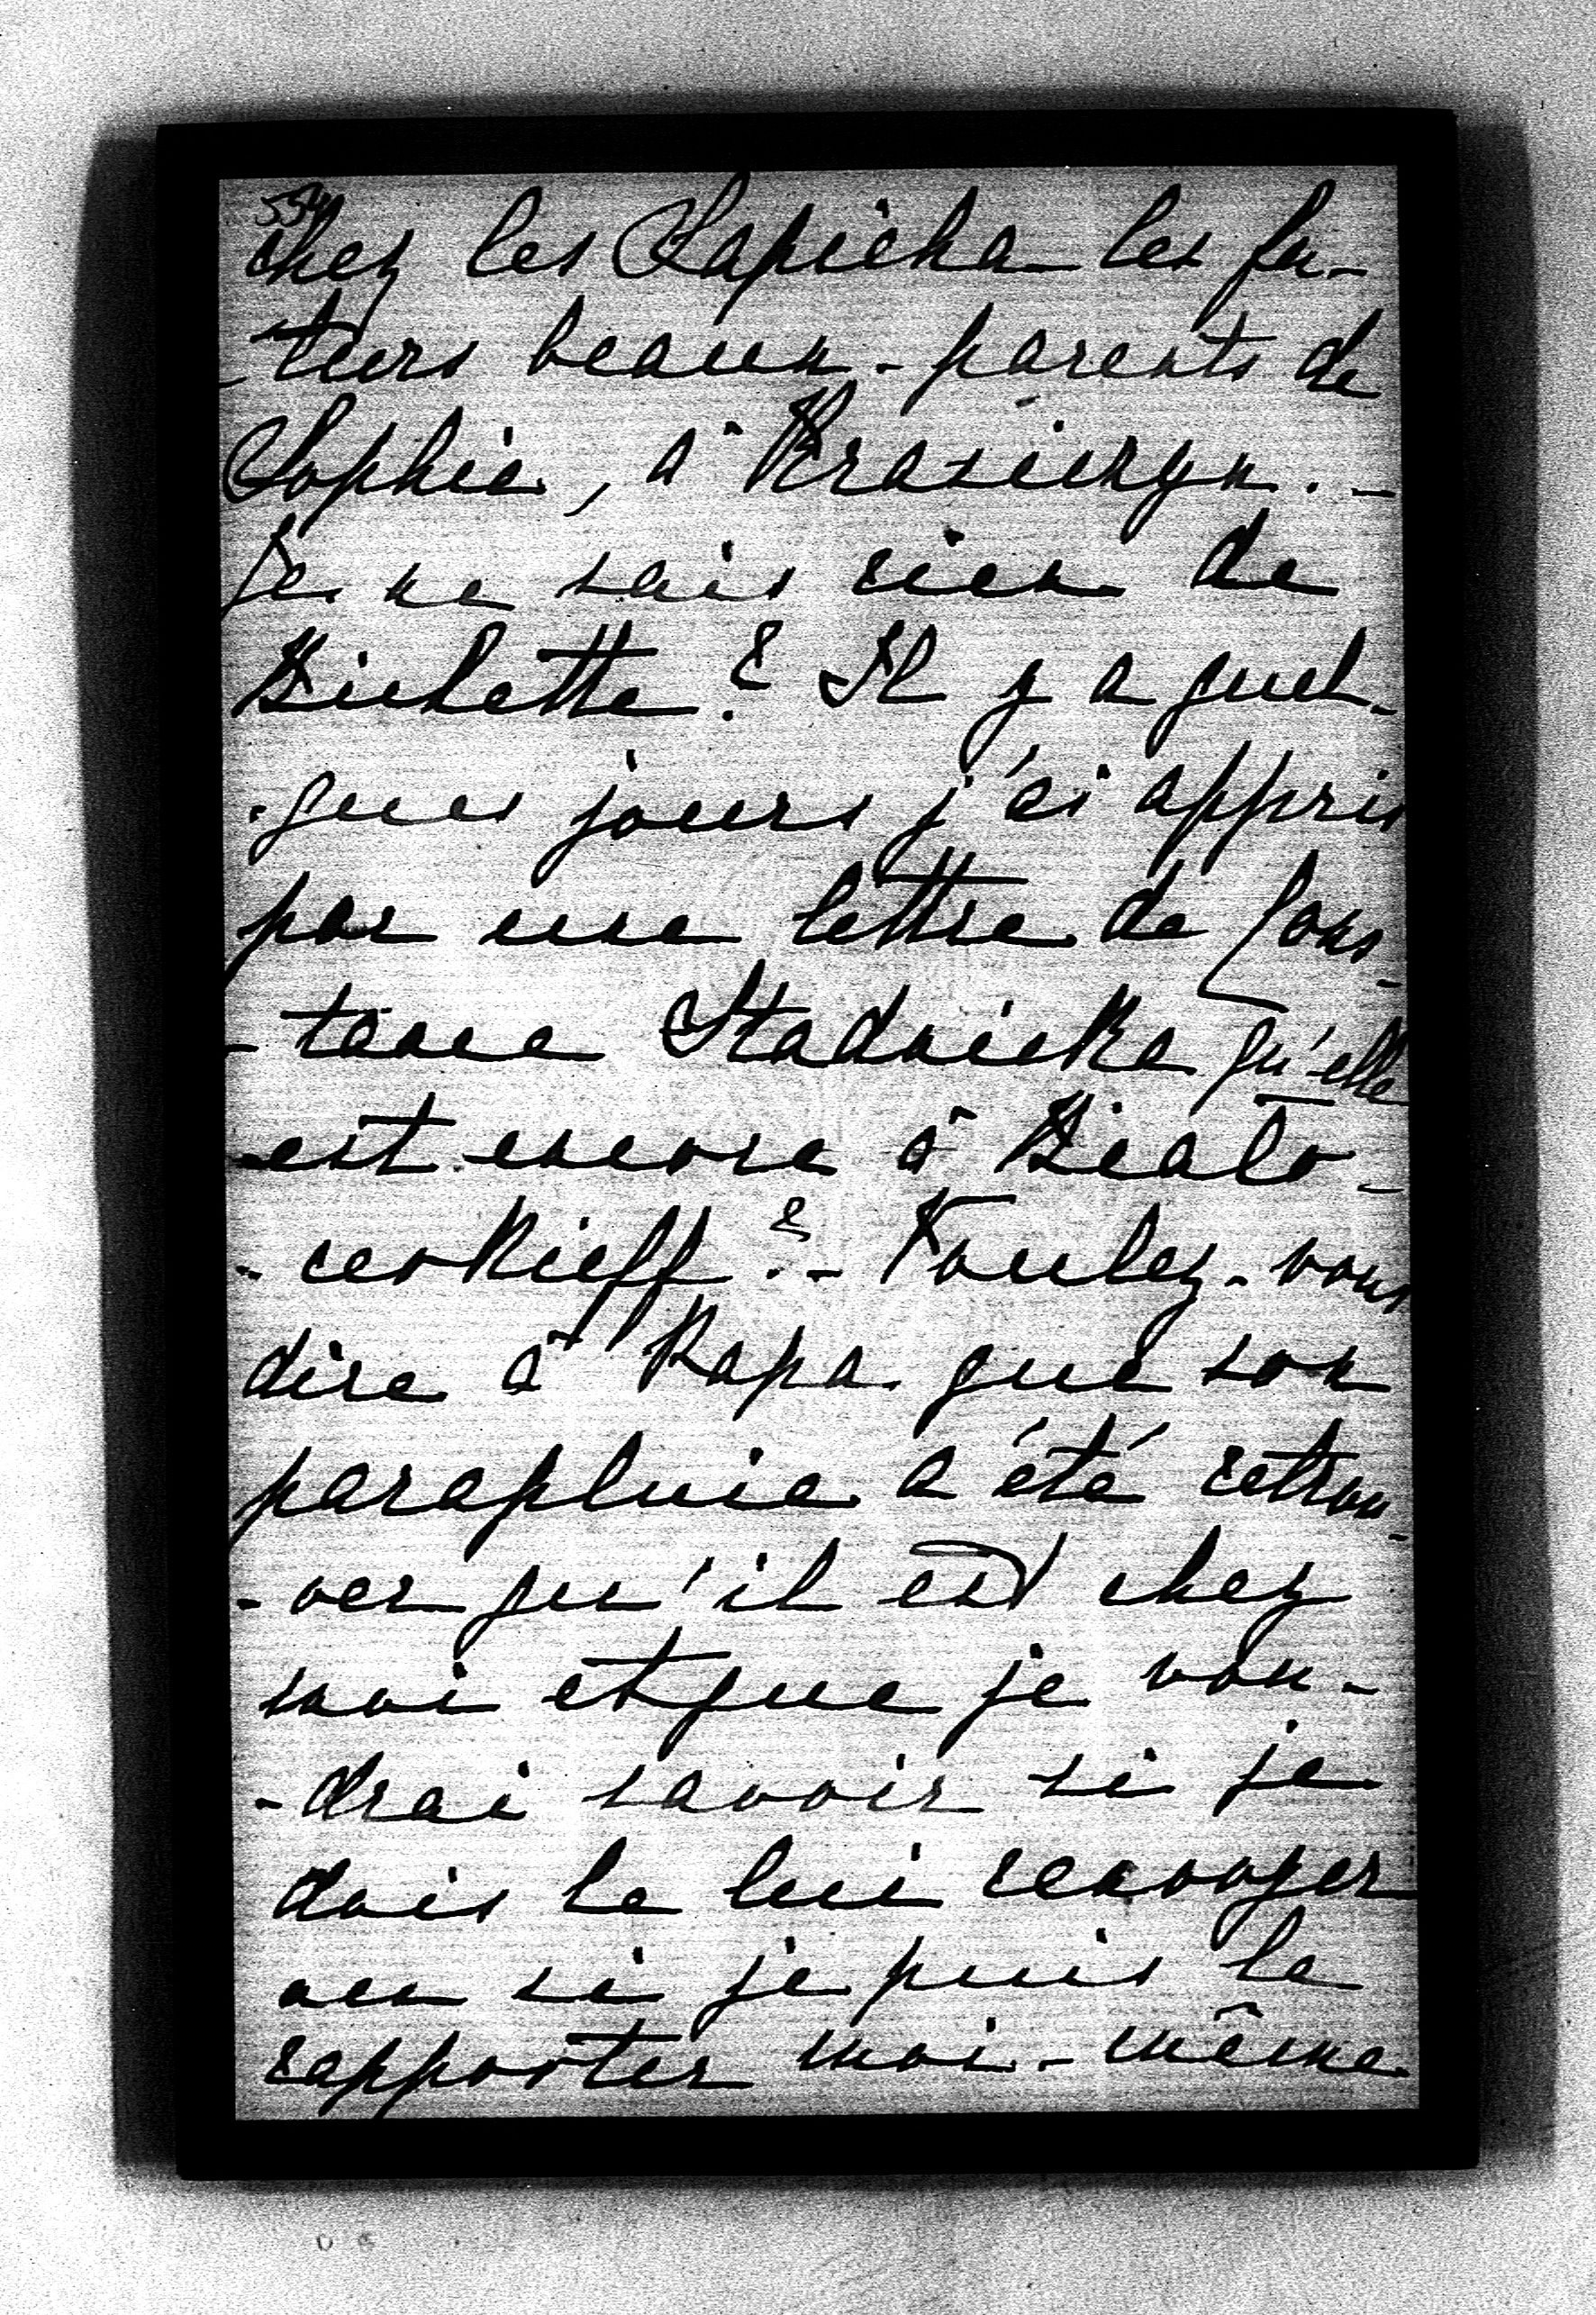 554
chez les Sapieha les fu-
-turs beaux-parents de
Sophie, à Krasiczyn. -
Je ne sais rien de
Bichette? Il y a quel-
-ques jours j'ai appris
par une lettre de Cons-
-tance Stadnicka qu'elle
est encore à Biało-
-cerkieff? - Voulez-vous
dire à Papa que son
parapluie a été retrou-
-ver qu'il est chez
moi et que je vou-
-drai savoir si je
dois le lui renvoyer
ou si je puis le
rapporter moi-même